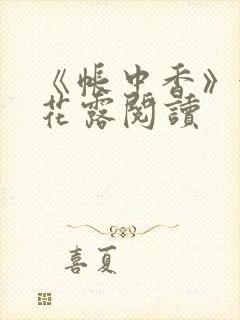 《帳中香》
花露閱讀
喜夏